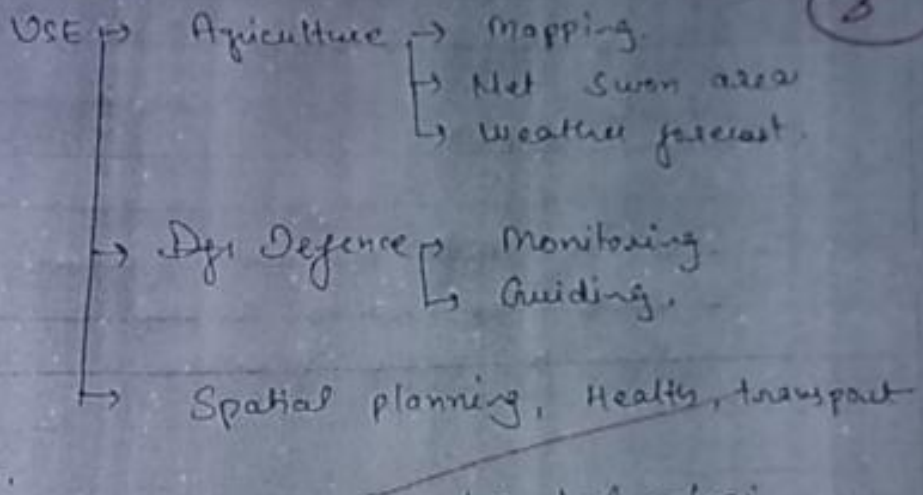 USE → Agriculture → Mapping.
→ Net swon area
→ Weather forecast.
→ Defence → Monitoring
→ Guiding.
→ Spatial planning, Health, transport